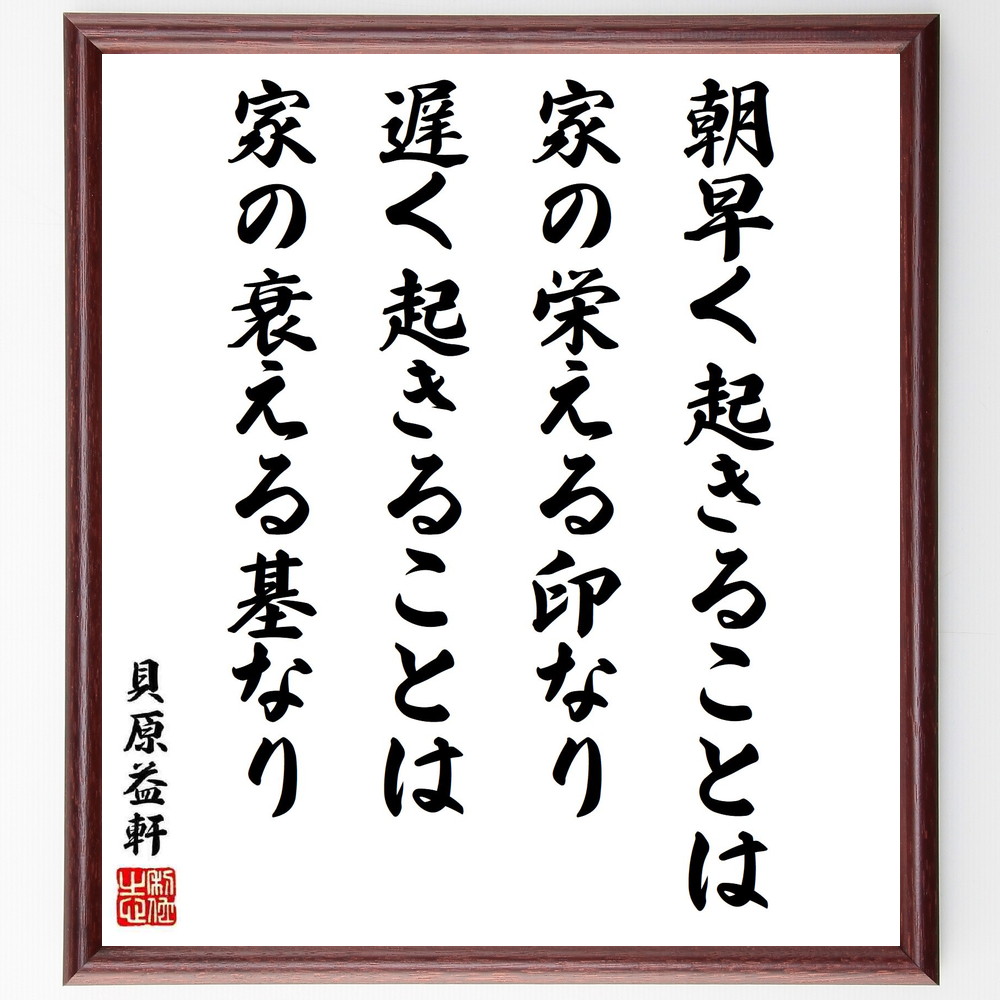 朝早く起きることは
家の栄える印なり
遅く起きることは
家の衰える基なり
貝原益軒